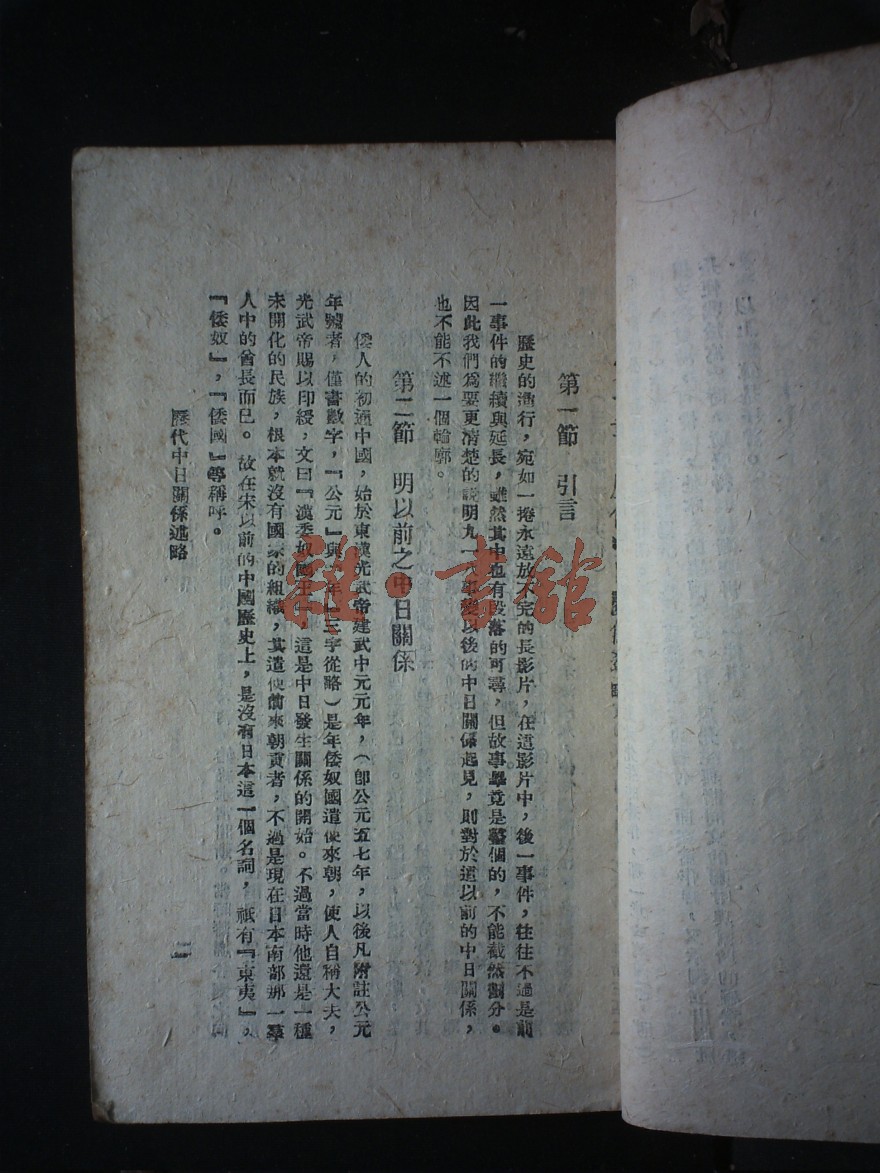 第一節 引言
歷史的進行，宛如一捲永遠放不完的長影片，在這影片中，後一事件，往往不過是前
一事件的繼續與延長，雖然其中也有段落的可尋，但故事畢竟是整個的，不能截然劃分。
因此我們為要更清楚的說明九一八事變以後的中日關係起見，則對於這以前的中日關係，
也不能不述一個輪廓。
第二節 明以前之中日關係
倭人的初通中國，始於東漢光武帝建武中元元年，（即公元五七年，以後凡附註公元
年號者，僅書數字，『公元』與『年』三字從略）是年倭奴國遣使來朝，使人自稱大夫，
光武帝賜以印綬，文曰『漢委奴國王』，這是中日發生關係的開始。不過當時他還是一種
未開化的民族，根本就沒有國家的組織，其遣使前來朝貢者，不過是現在日本南部那一羣
人中的酋長而已。故在宋以前的中國歷史上，是沒有日本這一個名詞，祇有『東夷』，
『倭奴』，『倭國』等稱呼。
歷代中日關係述略
雜·書館